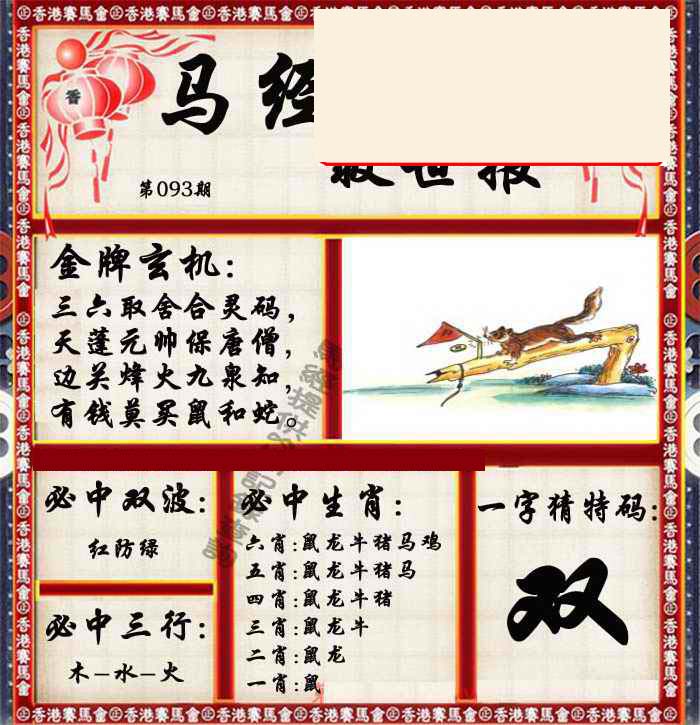 香港賽馬會
马经
救世报
香
第093期
金牌玄机:
三六取舍合灵码，
天蓬元帅保唐僧，
边关烽火九泉知，
有钱莫买鼠和蛇。
必中双波:
红防绿
必中三行:
木-水-火
必中生肖:
六肖:鼠龙牛猪马鸡
五肖:鼠龙牛猪马
四肖:鼠龙牛猪
三肖:鼠龙牛
二肖:鼠龙
一肖:鼠
一字猜特码:
双